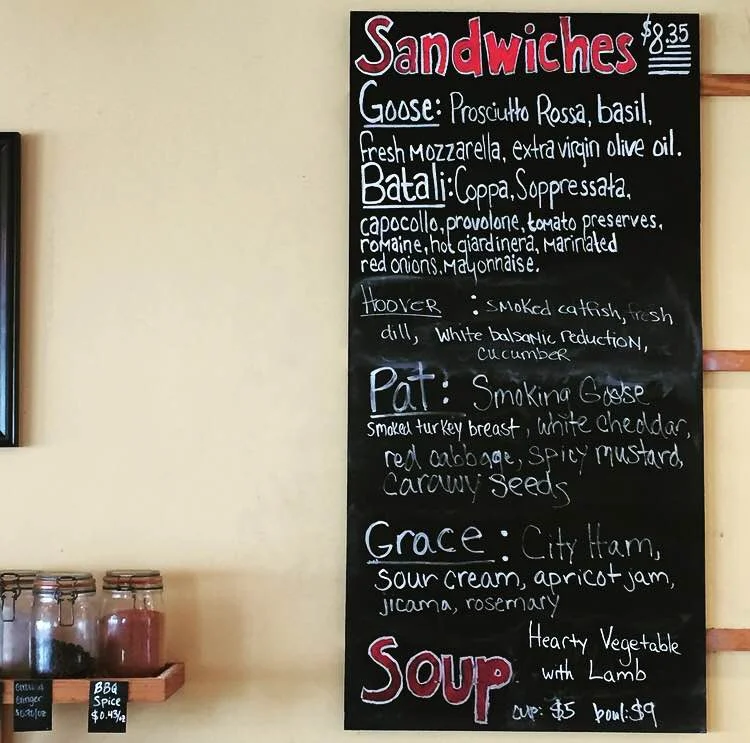 Sandwiches $8.35
Goose: Prosciutto Rossa, basil,
fresh Mozzarella, extra virgin olive oil.
Batali: Coppa, Soppressata,
capocollo, provolone, tomato preserves,
romaine, hot giardinera, marinated
red onions, Mayonnaise.
Hoover : smoked catfish, fresh
dill, White balsanic reduction,
cucumber
Pat: Smoking Goose
smoked turkey breast, white cheddar,
red cabbage, spicy mustard,
Carawy Seeds
Grace: City Ham,
sour cream, apricot jam,
jicama, rosemary
Soup
Hearty Vegetable
with Lamb
cup: $5 bowl: $9
Ginger
BBQ
Spice
$0.43/oz